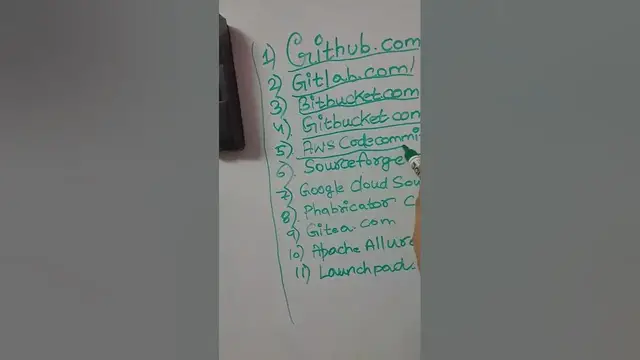 1) Github.com
2) Gitlab.com/
3) Bitbucket.com
4) Gitbucket.com
5) Aws Codecommi
6) Sourceforge
7) Google Cloud Sou
8) Phabricator C
9) Gitea.com
10) Apache Allura
11) Launchpad.